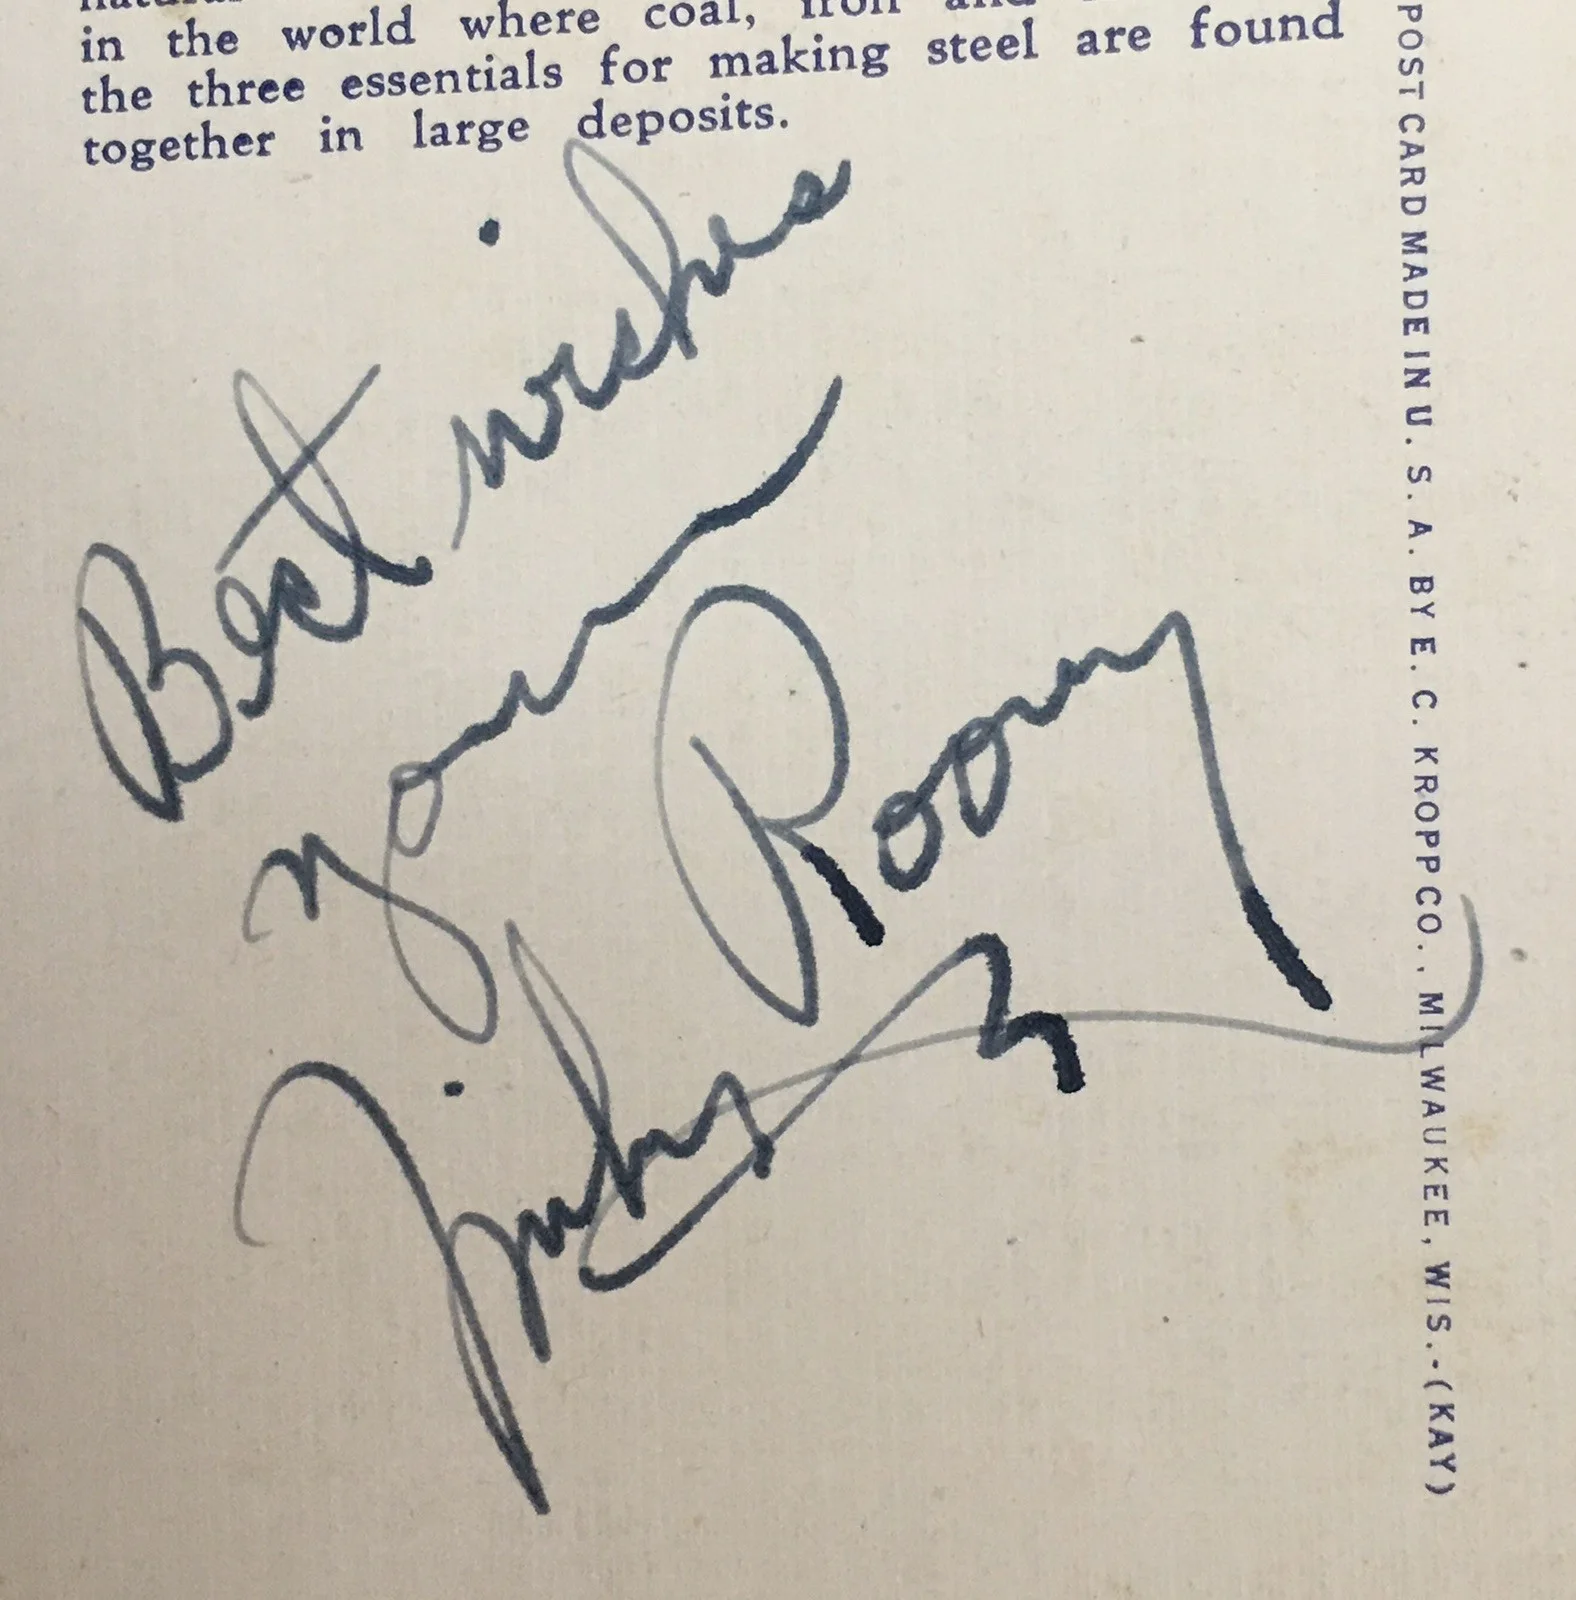 in the world where coal, iron and
the three essentials for making steel are found
together in large deposits.
Best wishes
POST CARD MADE IN U. S. A. BY E. C. KROPP CO., MILWAUKEE, WIS.-(KAY)